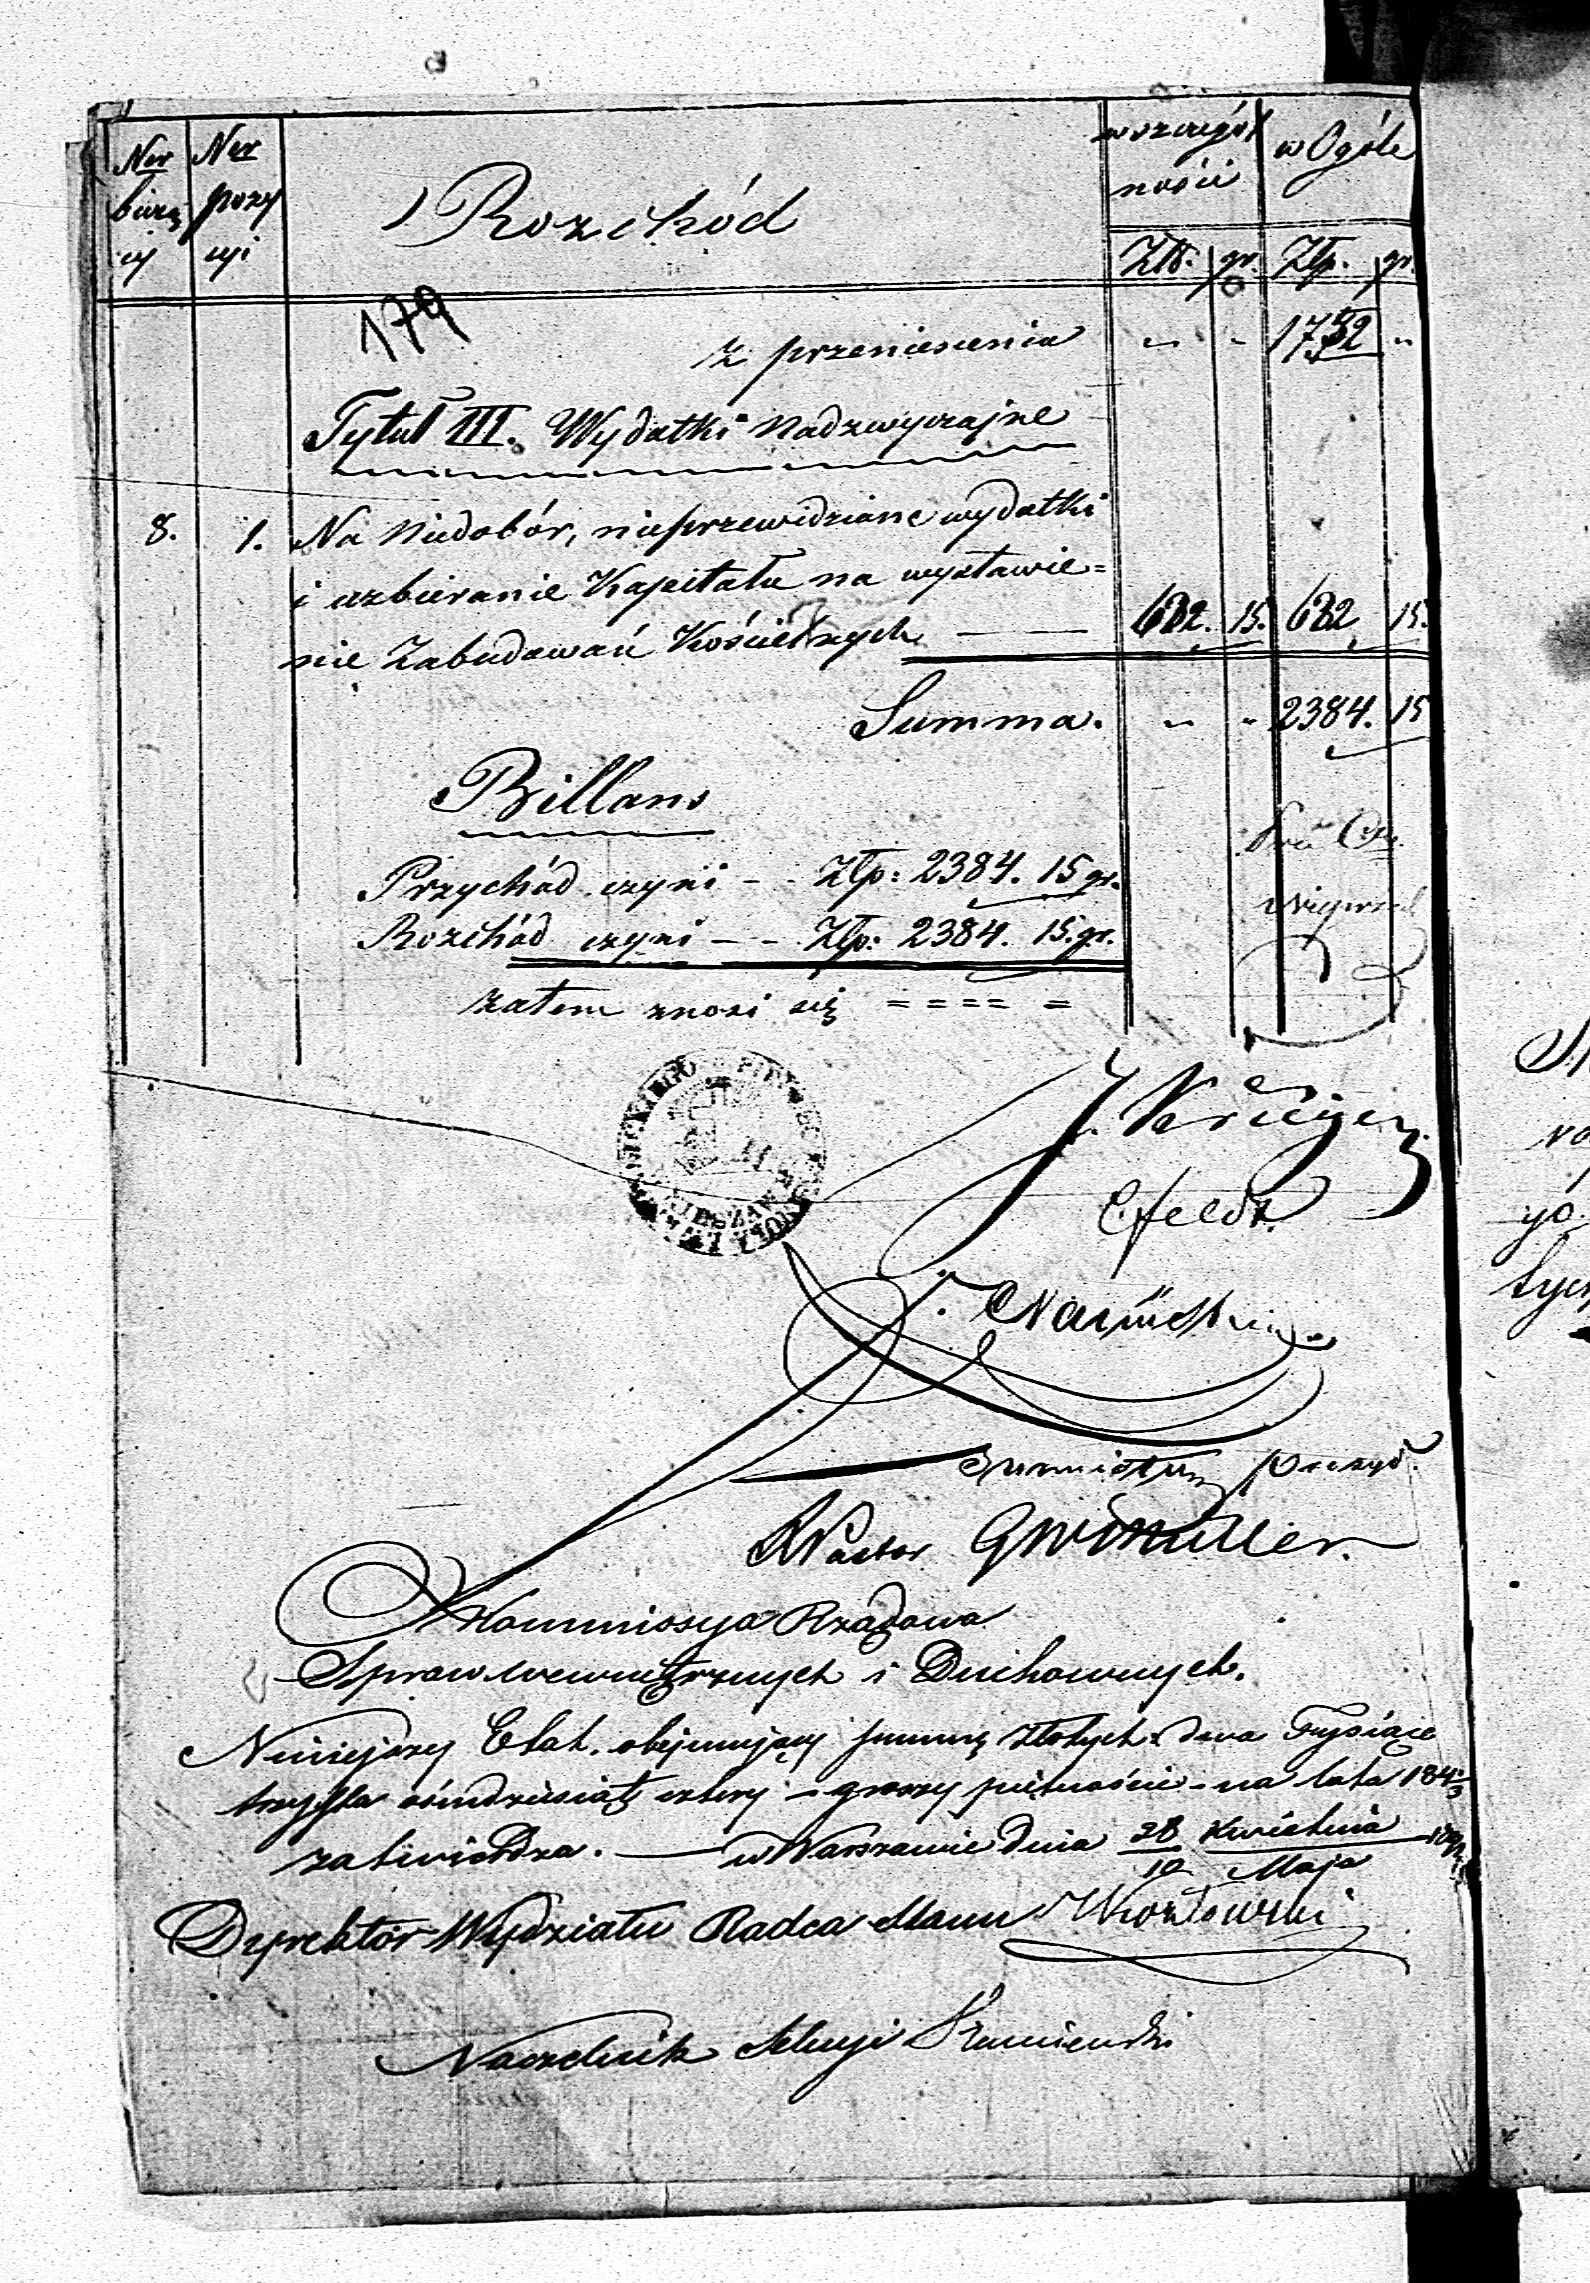 Ner bieżą cy
Ner pozy cyi
Rozchód
w szczegól ności
w Ogóle
Złp. gr. Złp. gr.
179
z przeniesienia " " 1752 "
Tytuł III. Wydatki Nadzwyczajne
8. 1. Na Niedobór, nieprzewidziane wydatki
i uzbieranie Kapitału na wystawie=
nie Zabudowań Kościelnych 632. 15. 632 15.
Summa. " " 2384. 15
Billans
Przychód czyni - - Złp: 2384. 15 gr.
Rozchód czyni - - Złp: 2384. 15. gr.
zatem znosi się = = = = =
J. Krüger
Pastor GWMuller.
Kommissya Rządowa
Spraw Wewnętrznych i Duchownych.
Niniejszy Etat. obejmujący summę złotych dwa Tysiące
trzysta ośmdziesiąt cztery - groszy piętnaście - na lata 184
zatwierdza. w Warszawie dnia 28/10 Kwietnia/Maja
Dyrektor Wydziału Radca Stanu Kozłowski
Naczelnik Sekcyi Kamieński